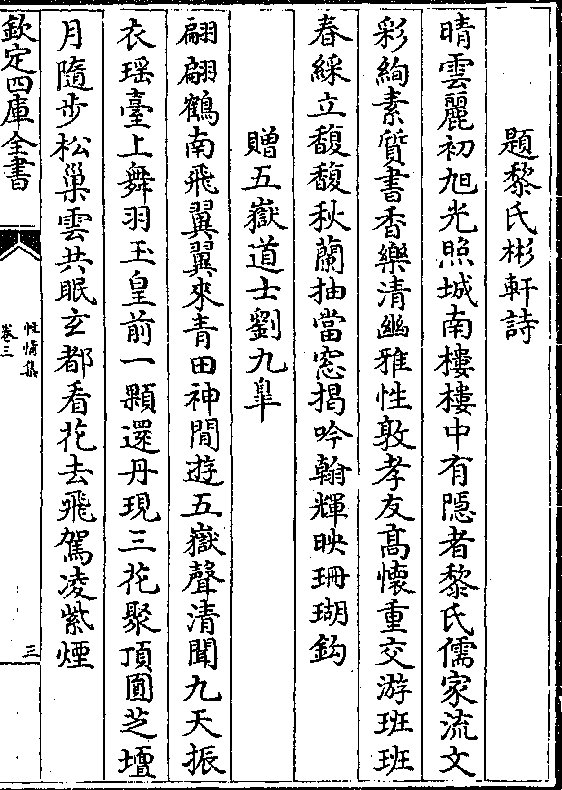 題黎氏彬軒詩
晴雲麗初旭光照城南樓樓中有隱者黎氏儒家流文
彩絢素質書香樂清幽雅性敦孝友高懷重交游班班
春綵立馥馥秋蘭抽當窓揭吟翰輝映珊瑚鈎
贈五嶽道士劉九臯
翩翩鶴南飛翼翼來青田神閒遊五嶽聲清聞九天振
衣瑶臺上舞羽玉皇前一顆還丹現三花聚頂圓芝壇
月隨步松巢雲共眠玄都看花去飛駕凌紫煙
欽定四庫全書
性情集
卷三
三